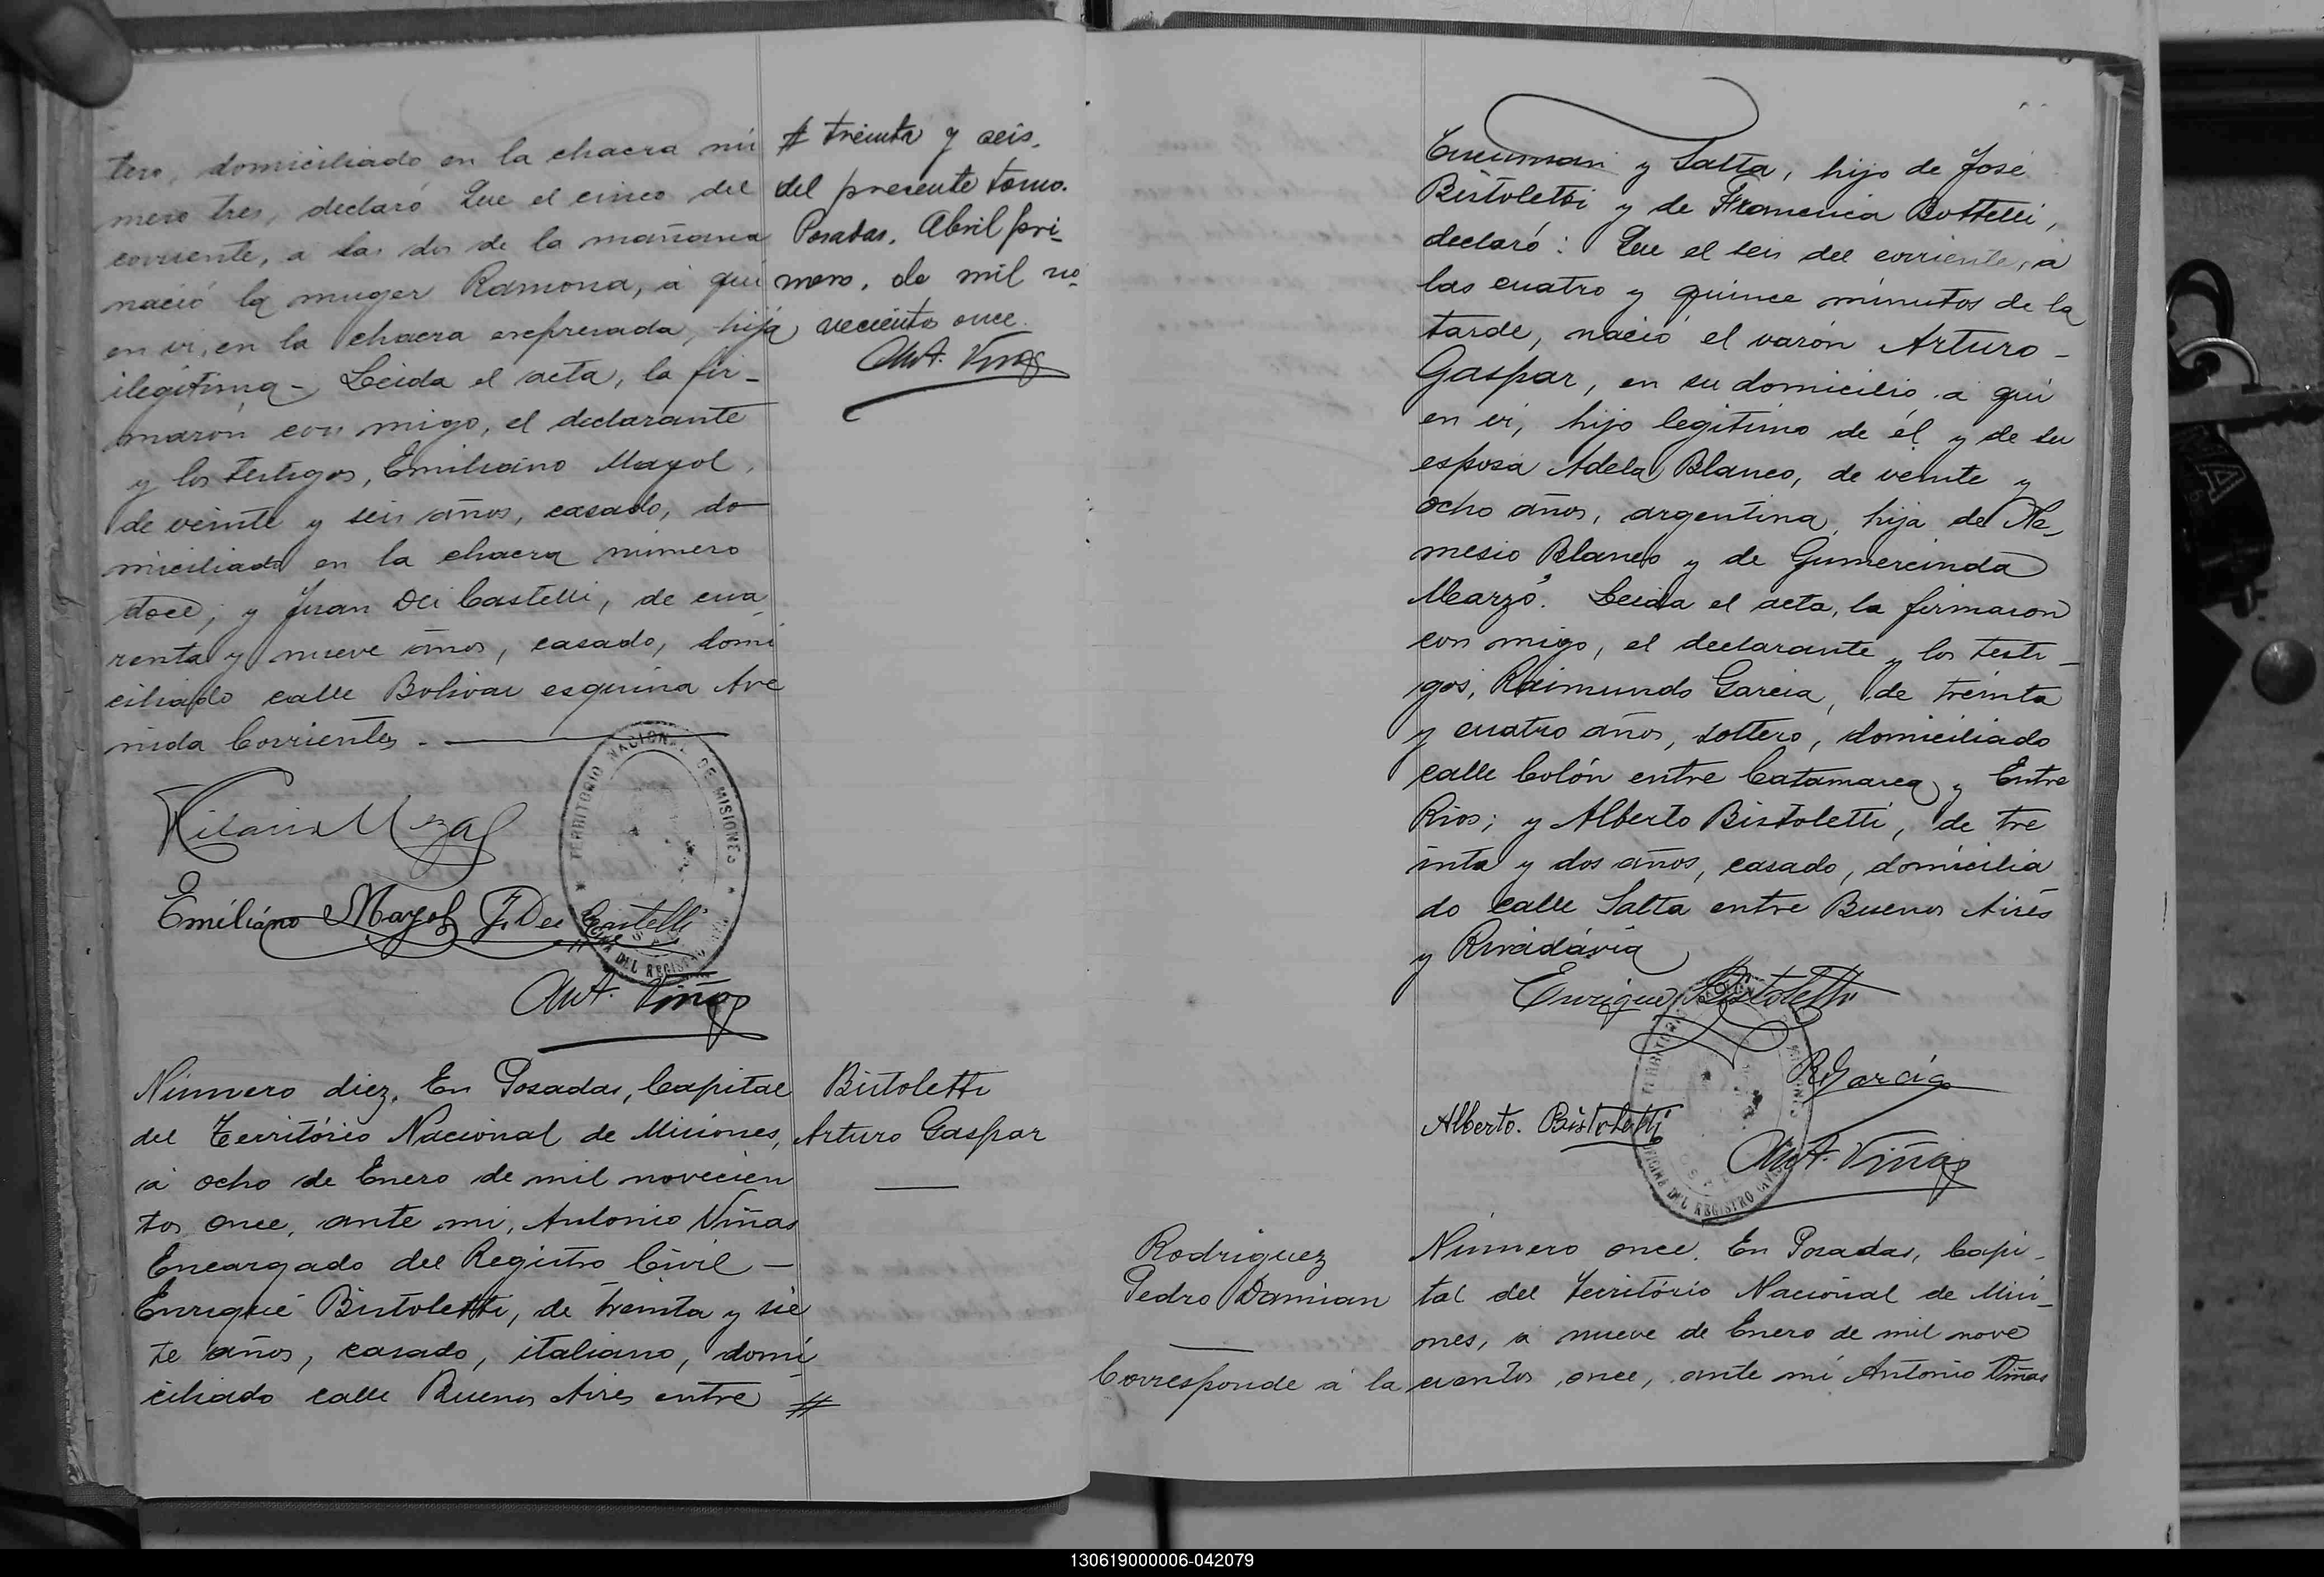 tero, domiciliado en la chacra nú
mero tres, declaró Que el cinco del
corriente, a las dos de la mañana
nació la muger Ramona, á qui
en vi, en la chacra expresada, hija
ilegítima - Leida el acta, la fir-
maron con migo, el declarante
y los testigos, Emiliano Mayol,
de veinte y seis años, casado, do
miciliado en la chacra número
doce; y Juan Dei Castelli, de cua
renta y nueve años, casado, domi
ciliado calle Bolivar esquina Ave
nida Corrientes -
TERRITORIO NACIONAL DE MISIONES
DEL REGISTRO
Emiliano Mayol J. Dei Castelli
Ant. Viñas
# treinta y seis.
del presente tomo.
Posadas, Abril pri-
mero, de mil no-
vecientos once.
Ant. Viñas
Número diez. En Posadas, Capital
del Território Nacional de Misiones,
á ocho de Enero de mil novecien
tos once, ante mi, Antonio Viñas
Encargado del Registro Civil -
Enrique Bistoletti, de treinta y sie
te años, casado, italiano, domi
ciliado calle Buenos Aires entre #
Bistoletti
Arturo Gaspar
Tucuman y Salta, hijo de José
Bistoletti y de Francisca Bottelli,
declaró: Que el seis del corriente, á
las cuatro y quince minutos de la
tarde, nació el varón Arturo -
Gaspar, en su domicilio á qui
en vi, hijo legítimo de él y de su
esposa Adela Blanco, de veinte y
ocho años, argentina, hija de Ne-
mesio Blanco y de Gumercinda
Marzó. Leida el acta, la firmaron
con migo, el declarante y los testi-
gos, Raimundo Garcia, de treinta
y cuatro años, soltero, domiciliado
calle Colón entre Catamarca y Entre
Rios; y Alberto Bistoletti, de tre
inta y dos años, casado, domicilia
do calle Salta entre Buenos Aires
y Rivadávia
Enrique Bistoletti
R Garcia
Alberto. Bistoletti
Ant. Viñas
OFICINA DEL REGISTRO CIVIL
Rodriguez
Pedro Damian
Corresponde á la
Número once. En Posadas, Capi-
tal del Território Nacional de Misi-
ones, á nueve de Enero de mil nove
cientos once, ante mí Antonio Viñas
130619000006-042079